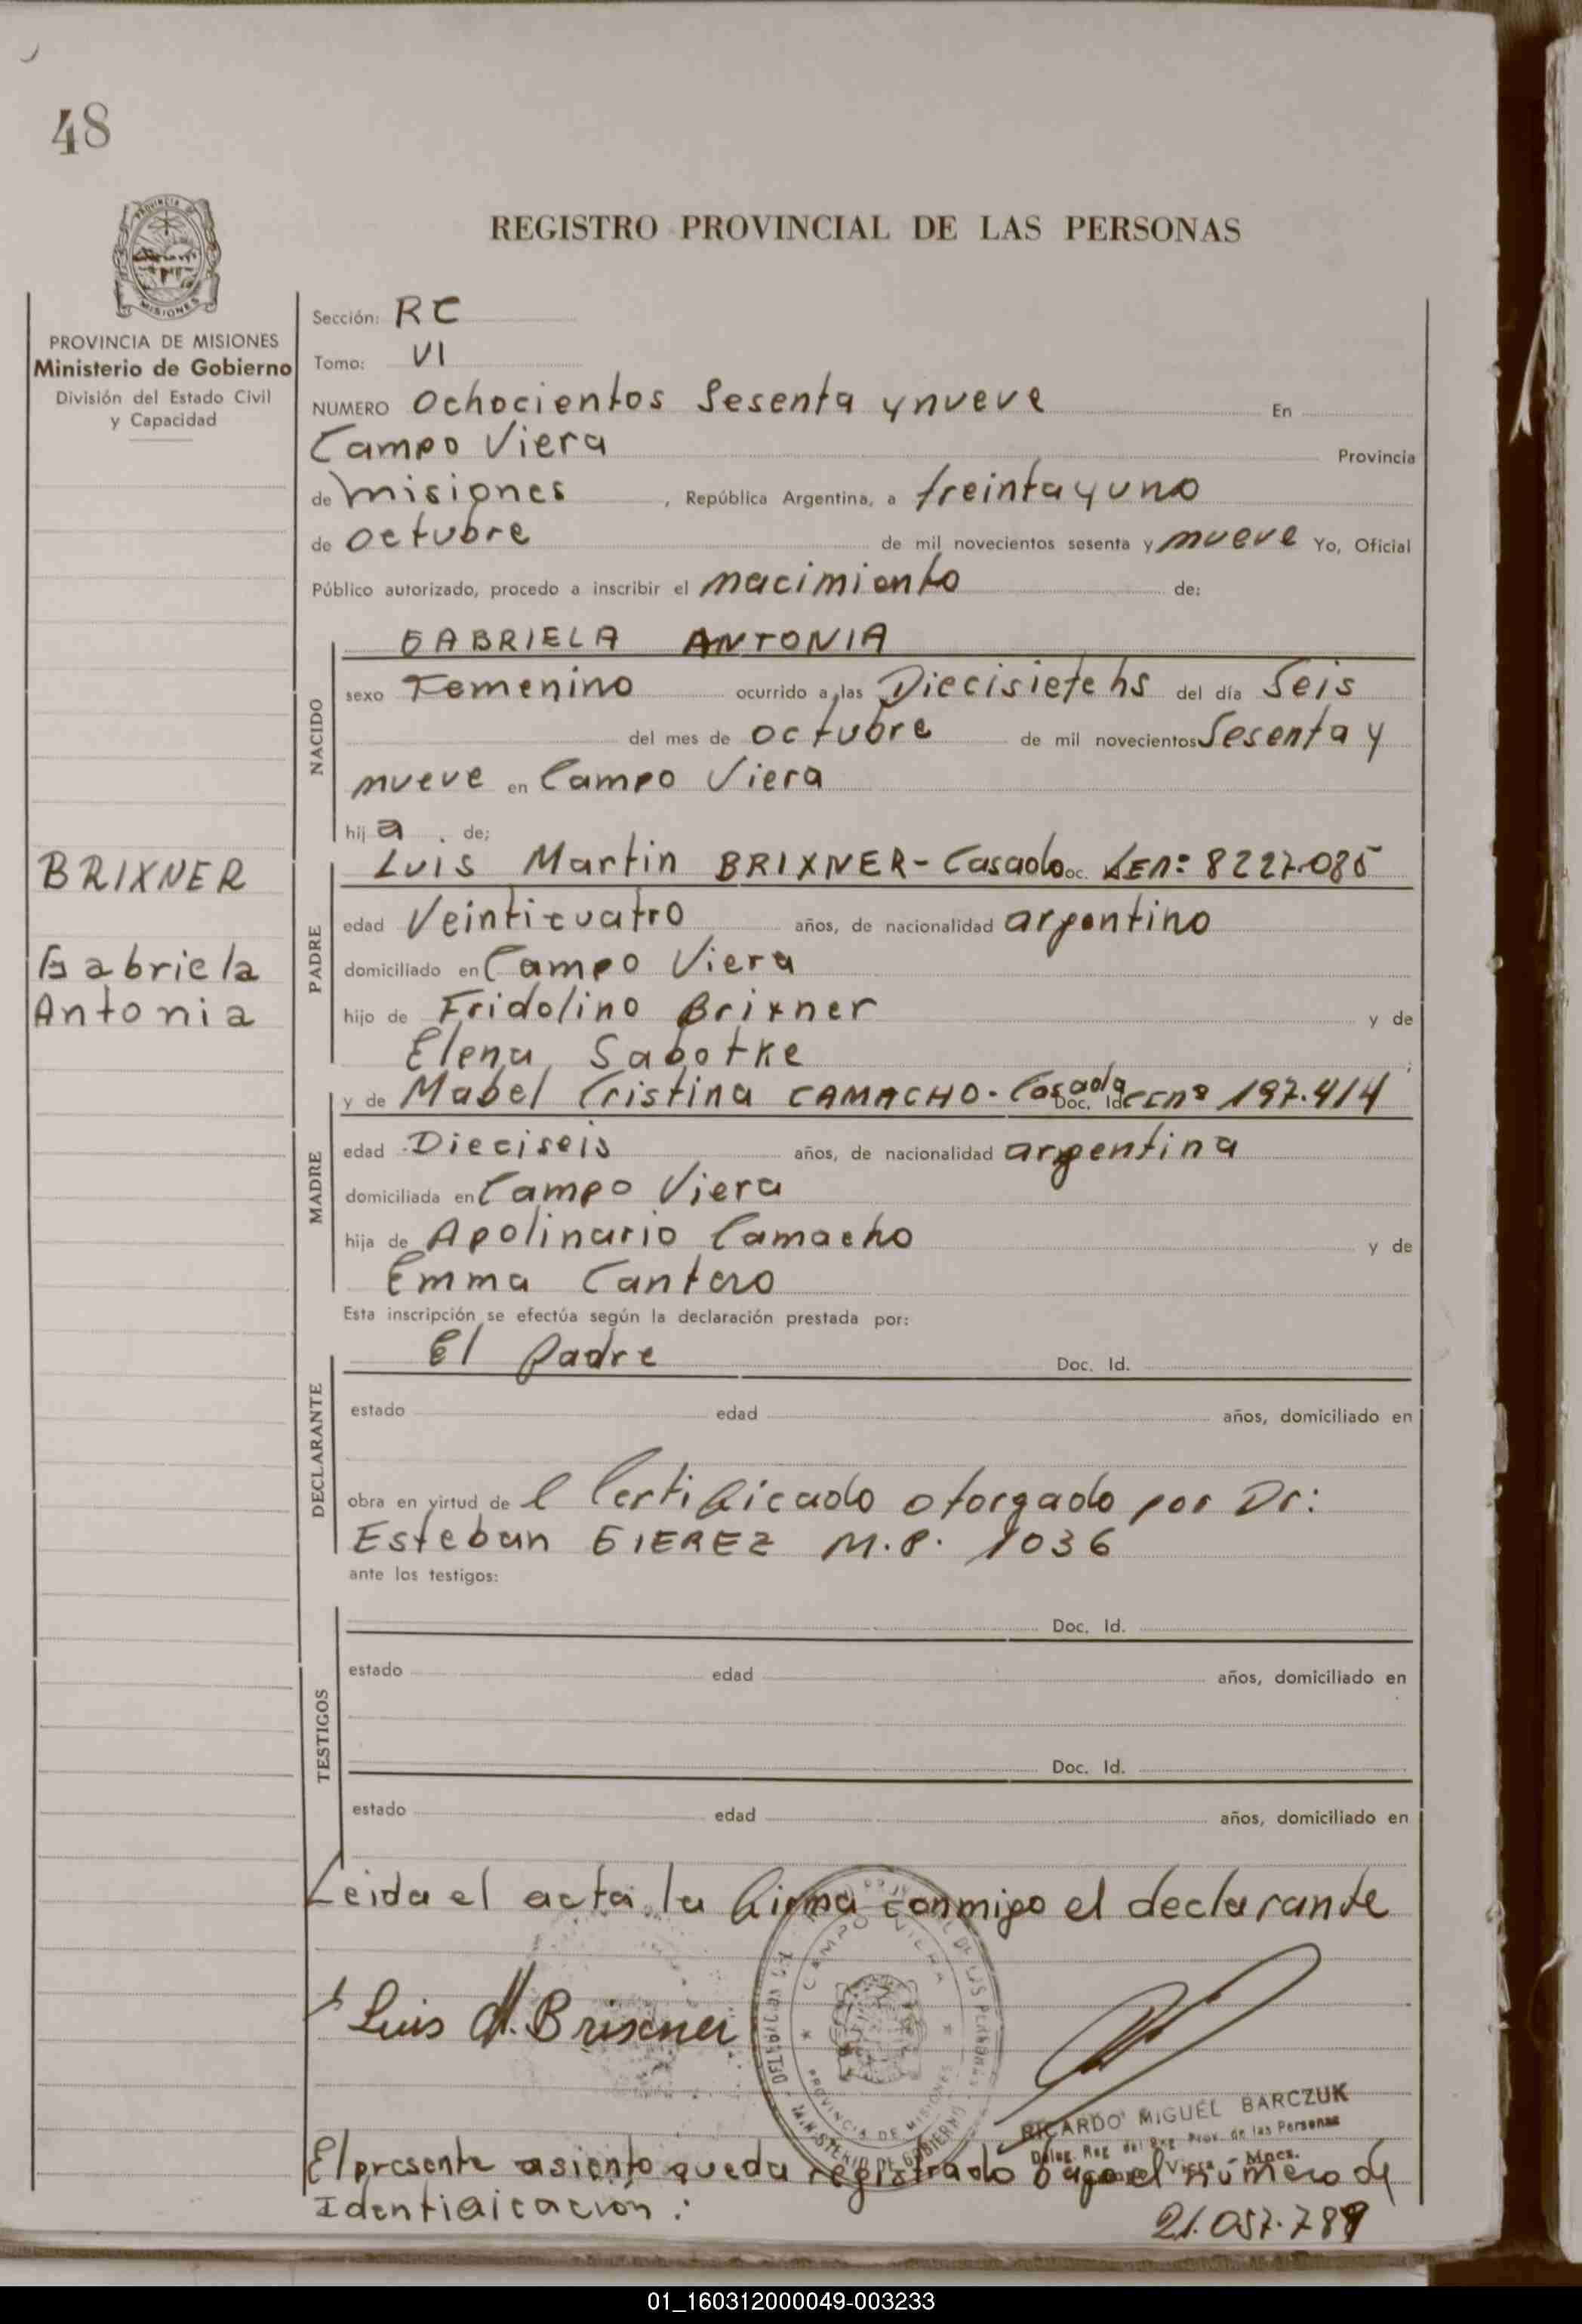 48
REGISTRO PROVINCIAL DE LAS PERSONAS
PROVINCIA DE MISIONES
Ministerio de Gobierno
División del Estado Civil
y Capacidad
Sección: RC
Tomo: VI
NUMERO Ochocientos Sesenta y nueve En
Campo Viera Provincia
de misiones, República Argentina, a treinta y uno
de octubre de mil novecientos sesenta y nueve Yo, Oficial
Público autorizado, procedo a inscribir el nacimiento de:
NACIDO
GABRIELA ANTONIA
sexo Femenino ocurrido a las Diecisiete hs del día Seis
del mes de octubre de mil novecientos Sesenta y
nueve en Campo Viera
hija de;
BRIXNER
Gabriela
Antonia
PADRE
Luis Martin BRIXNER - Casado oc. LEnº 8227.085
edad Veinticuatro años, de nacionalidad argentino
domiciliado en Campo Viera
hijo de Fridolino Brixner y de
Elena Sabotke ;
MADRE
y de Mabel Cristina CAMACHO - Casada Doc. Id. CInº 197.414
edad Dieciseis años, de nacionalidad argentina
domiciliada en Campo Viera
hija de Apolinario Camacho y de
Emma Cantero
Esta inscripción se efectúa según la declaración prestada por:
DECLARANTE
El Padre Doc. Id.
estado edad años, domiciliado en
obra en virtud de l Certificado otorgado por Dr:
Esteban GIEREZ M.P. 1036
ante los testigos:
TESTIGOS
Doc. Id.
estado edad años, domiciliado en
Doc. Id.
estado edad años, domiciliado en
Leida el acta, la firma conmigo el declarante
Luis M. Brixner
CAMPO VIERA
PROVINCIA DE MISIONES
MINISTERIO DE GOBIERNO
RICARDO MIGUEL BARCZUK
Deleg. Reg. del Reg. Prov. de las Personas
Viera - Mnes.
El presente asiento queda registrado bago el número de
Identificación:
21.057.789
01_160312000049-003233